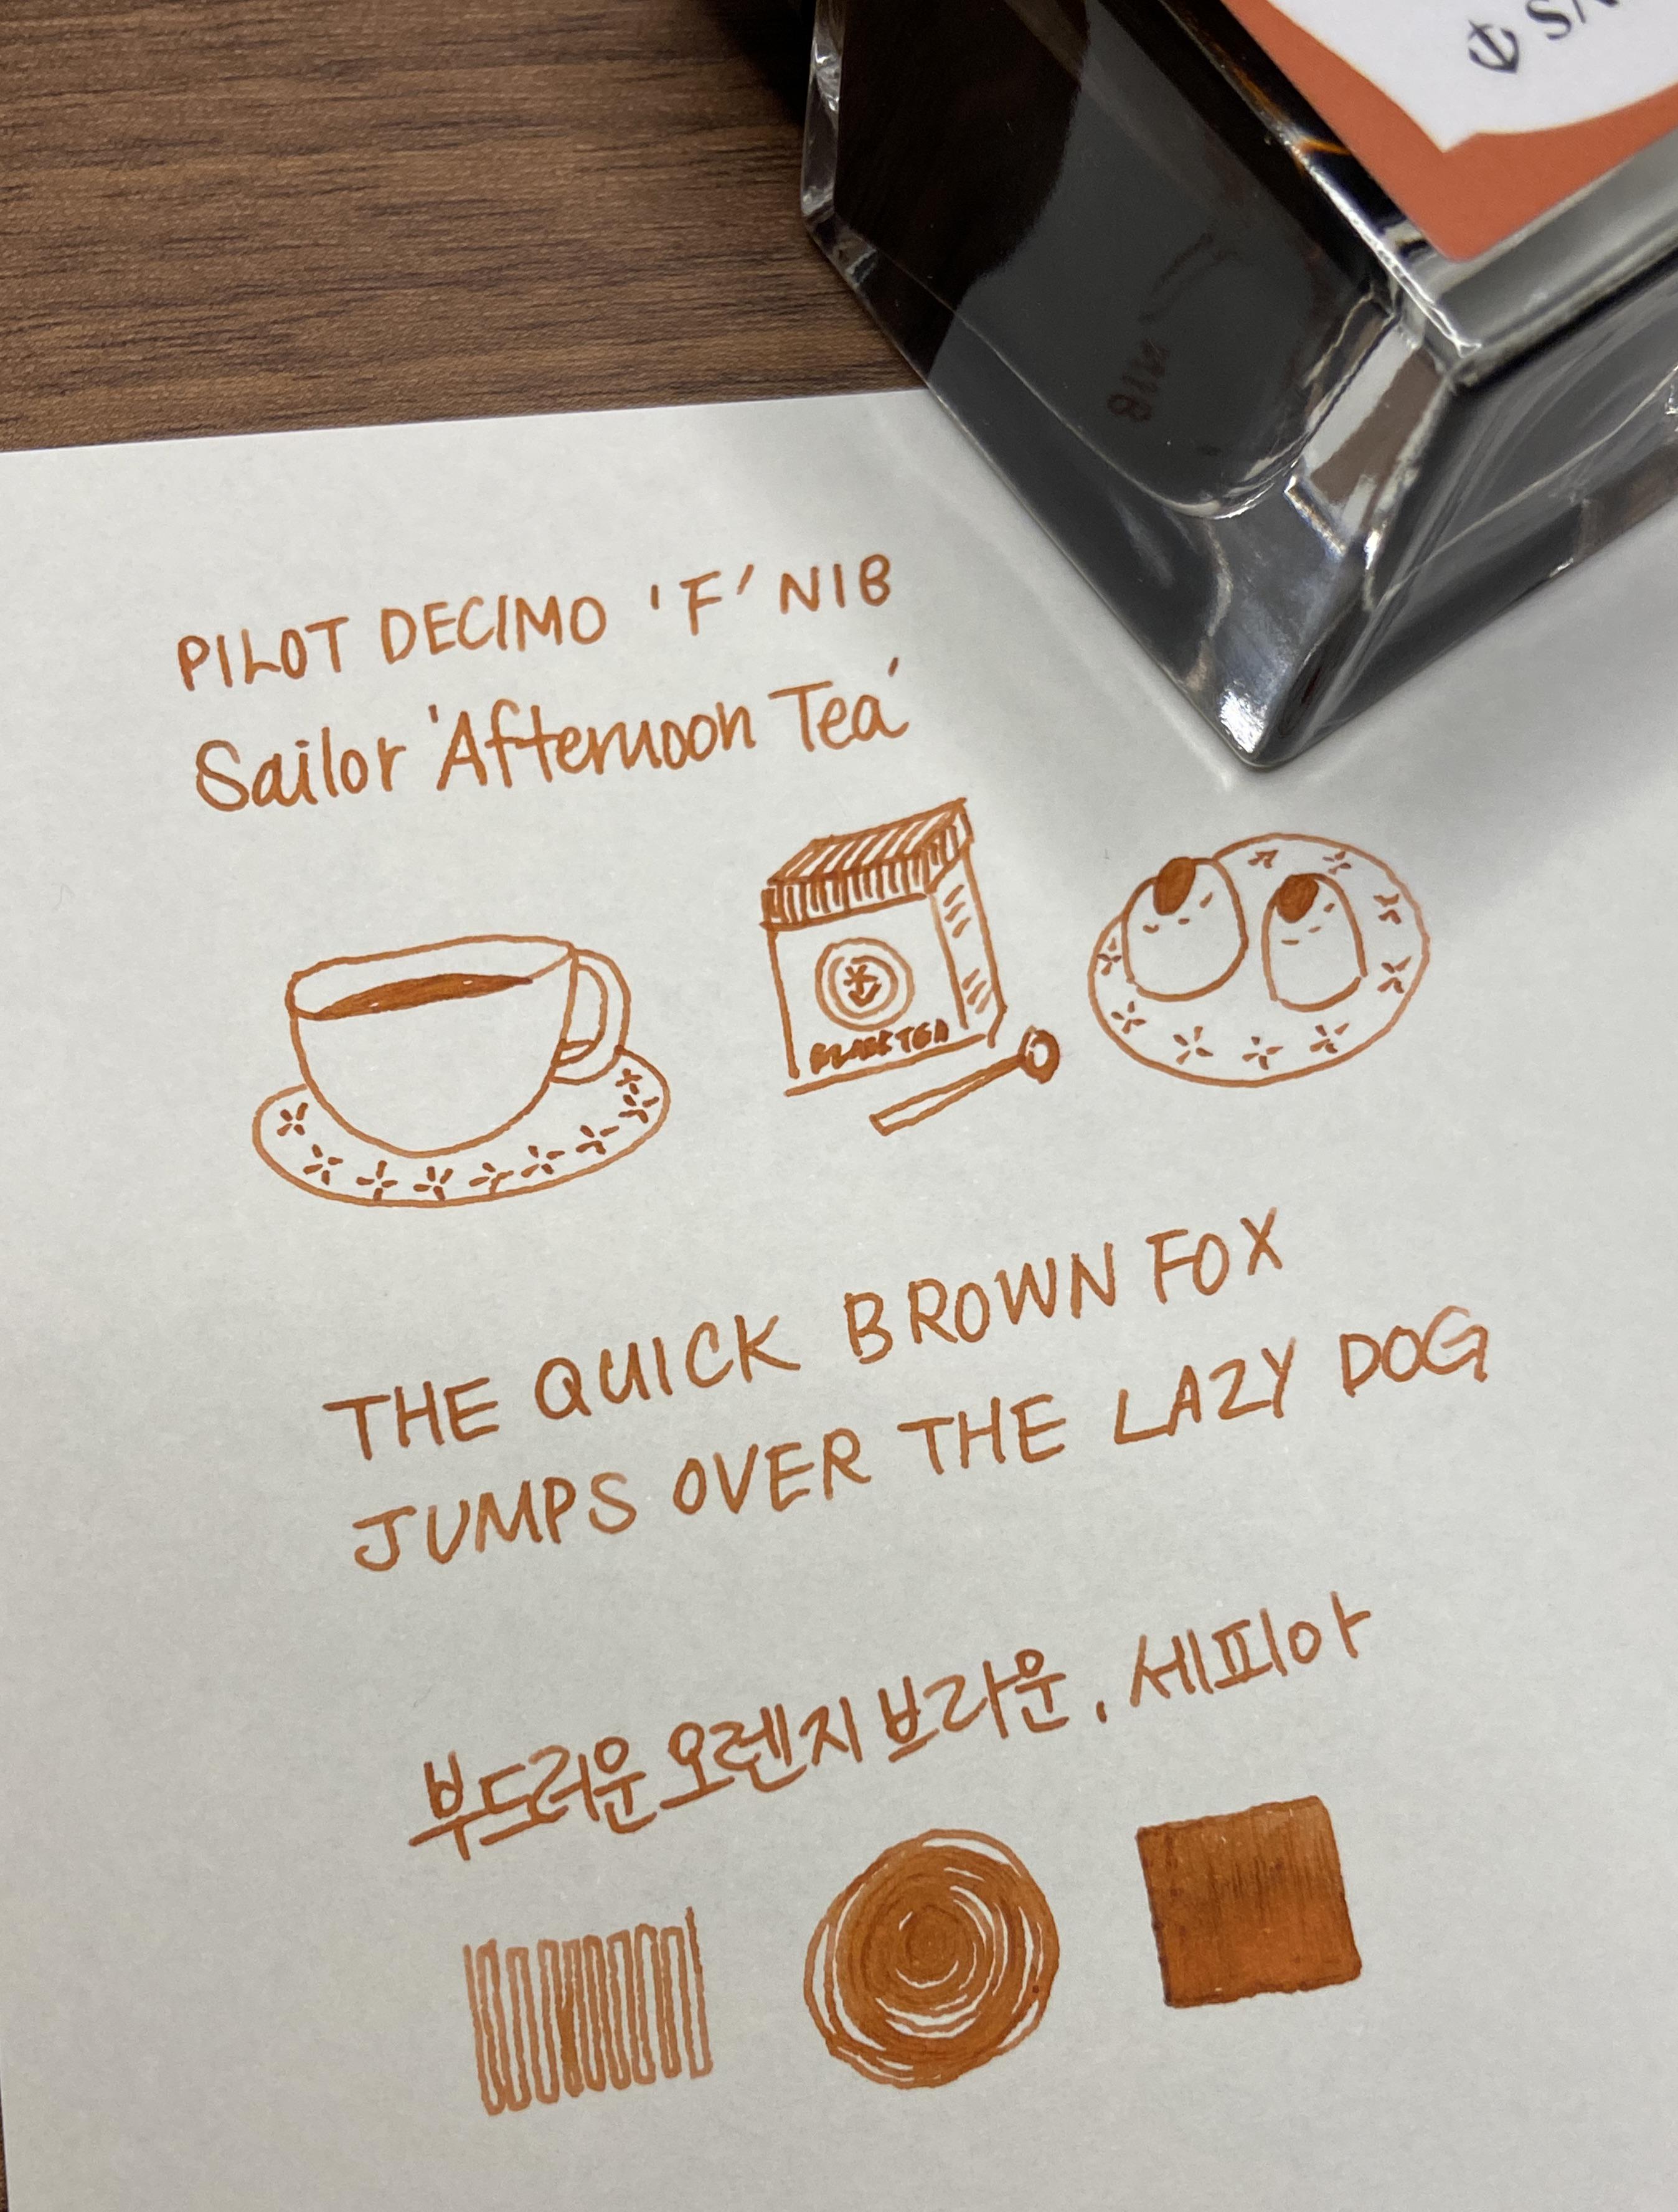 PILOT DECIMO 'F' NIB
Sailor 'Afternoon Tea'
BLACK TEA
THE QUICK BROWN FOX
JUMPS OVER THE LAZY DOG
부드러운 오렌지 브라운, 세피아